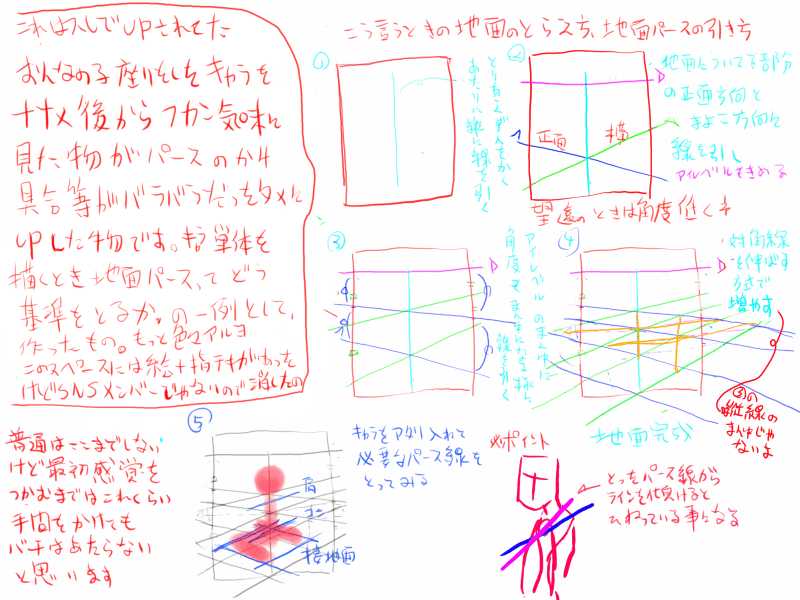 これは人しでupされてた
おんなの子座りをしたキャラを
ナナメ後からフカン気味に
見た物がパースのかけ
具合等がバラバラだったタメに
upした物です。キャラ単体を
描くとき地面パースってどう
基準をとるか。の一例として、
作ったもの。もっと色々アルヨ
このスペースには絵+指テキがあった
けどSNSメンバーじゃないので消したの
こう言うときの地面のとらえ方、地面パースの引き方
①
とりあえずわくをかく
あたりに縦に線を引く
②
正面
横
地面についてる部分
の正面方向と
まよこ方向に
線を引し
アイレベルをきめる
望遠のときは角度低くネ
③
アイレベルのまん中に
線を引く
④
対角線
を伸ばす
方式で
増やす
③の
縦線の
まん中じゃ
ないよ
地面完成
普通はここまでしない
けど最初感覚を
つかむまではこれくらい
手間をかけても
バチはあたらない
と思います
⑤
肩
コシ
接地面
キャラをアタリ入れて
必要なパース線を
とってみる
ポイント
とったパース線から
ラインを仕受けると
ひねっている事になる